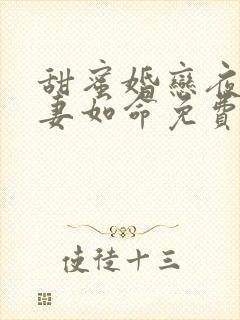 甜蜜婚戀夜
妻如命免費
使徒十三